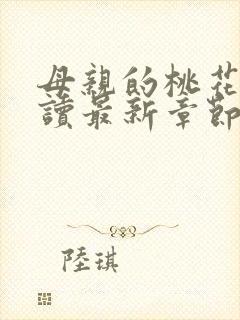 母親的桃花
讀最新章節
陸琪